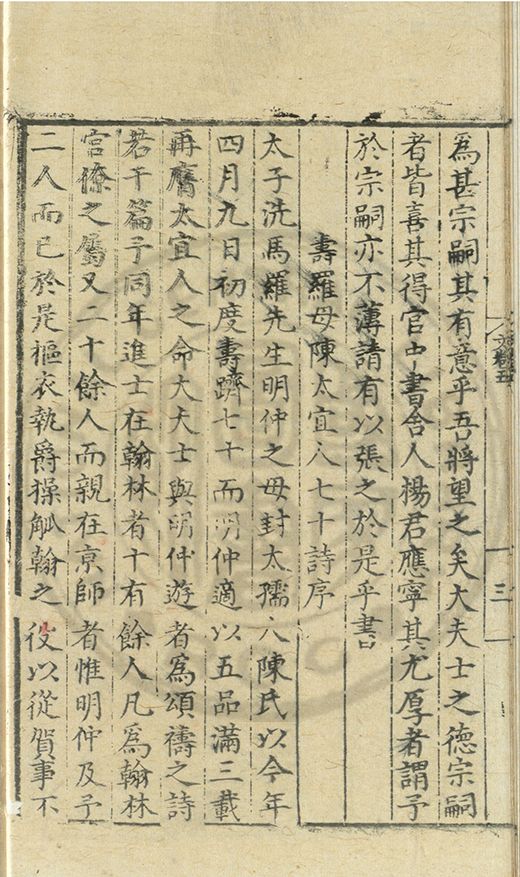 爲甚宗嗣其有意乎吾將望之矣大夫士之德宗嗣
者皆喜其得官中書舍人楊君應寧其尤厚者謂予
於宗嗣亦不薄請有以張之於是乎書
壽羅母陳太宜人七十詩序
太子洗馬羅先生明仲之母封太孺人陳氏以今年
四月九日初度壽躋七十而明仲適以五品滿三載
再膺太宜人之命大夫士與明仲遊者爲頌禱之詩
若干篇予同年進士在翰林者十有餘人凡爲翰林
宮僚之屬又二十餘人而親在京師者惟明仲及予
二人而已於是摳衣執爵操觚翰之役以從賀事不
三